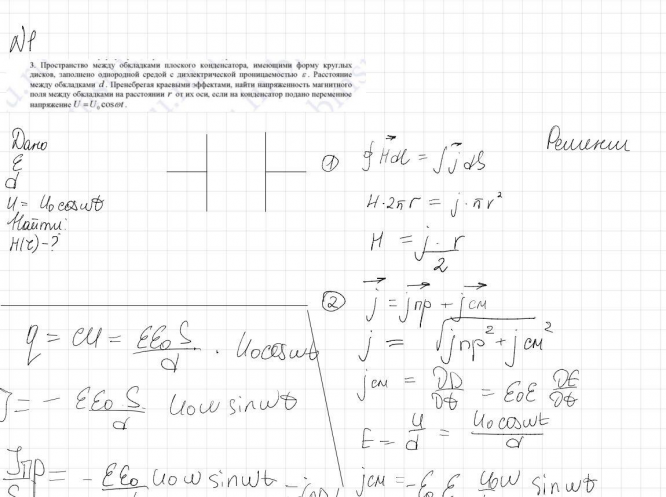 N1
3. Пространство между обкладками плоского конденсатора, имеющими форму круглых
дисков, заполнено однородной средой с диэлектрической проницаемостью ε. Расстояние
между обкладками d. Пренебрегая краевыми эффектами, найти напряженность магнитного
поля между обкладками на расстоянии r от их оси, если на конденсатор подано переменное
напряжение U = U₀ cosωt.
Дано
ε
d
U = U₀ cosωt
Найти:
H(r) - ?
Решении
① ∮ H⃗ dl = ∫ j⃗ dS
H · 2πr = j · πr²
H = j · r / 2
② j⃗ = j⃗пр + j⃗см
j = √(jпр² + jсм²)
jсм = DD/Dt = ε₀ε DE/Dt
E = U/d = U₀cosωt/d
jсм = -ε₀ε U₀ω sinωt
q = CU = εε₀S/d · U₀cosωt
J = - εε₀S/d U₀ω sinωt
Jпр/S = - εε₀ U₀ω sinωt -